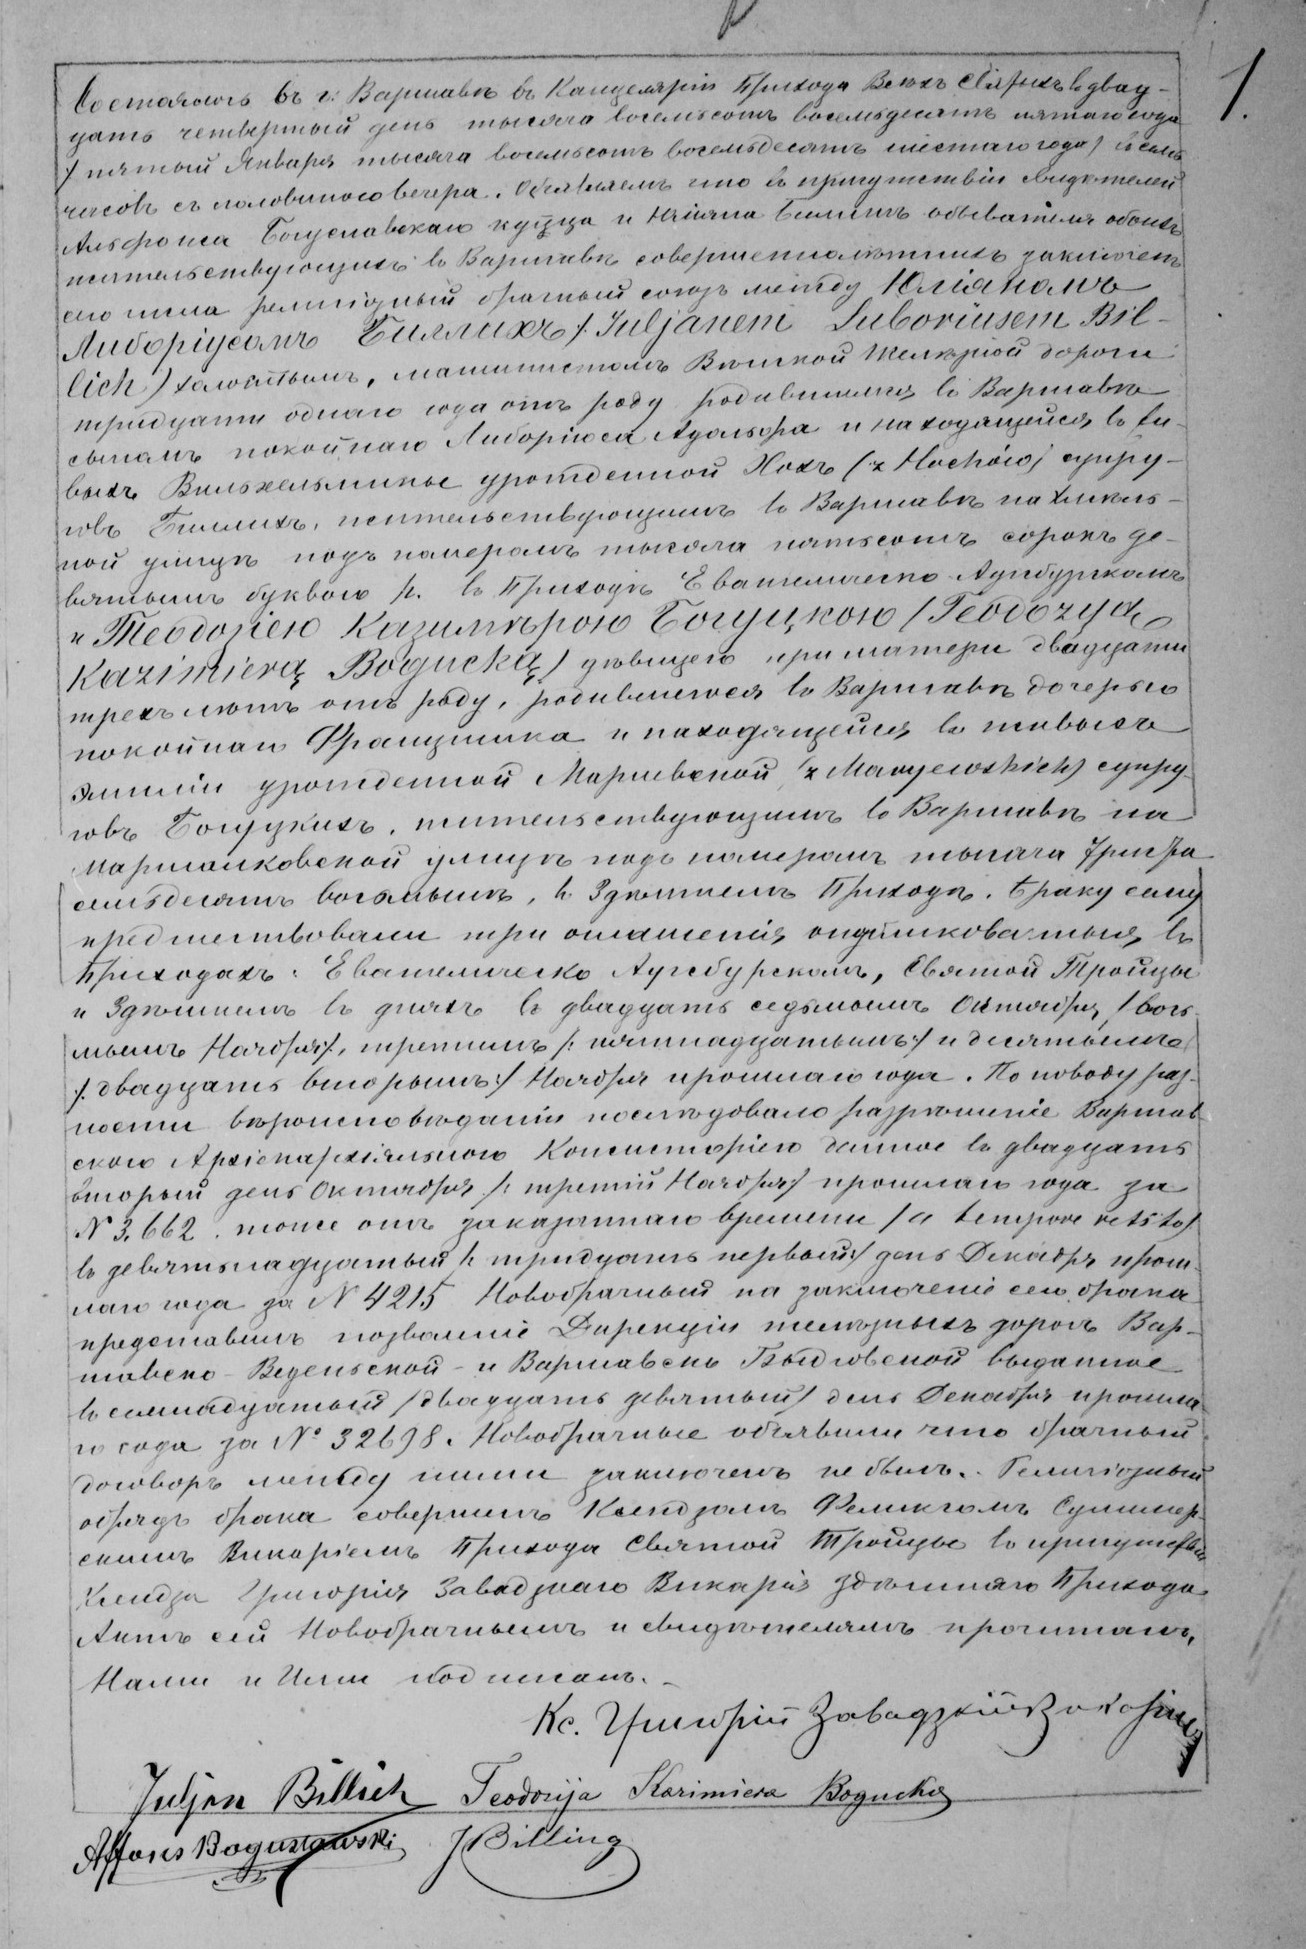 1.
Состоялось въ г: Варшавѣ въ Канцеляріи Прихода Всѣхъ Святыхъ въ двад-
цать четвертый день тысяча восемьсотъ восемьдесятъ пятаго года
/ пятый Января тысяча восемьсотъ восемьдесятъ шестаго года / въ семь
часовъ съ половиною вечера. Объявляемъ что въ присутствіи свидѣтелей
Альфонса Богуславскаго купца и Юліяна Биллингъ обывателя обоихъ
жительствующихъ въ Варшавѣ совершеннолѣтнихъ заключенъ
сего числа религіозный брачный союзъ между Юліяномъ
Либоріусомъ Биллихъ /: Juljanem Luboriusem Bil-
lich / холостымъ, машинистомъ Вѣнской желѣзной дороги
тридцати однаго года отъ роду родившимся въ Варшавѣ
сыномъ покойнаго Либоріюса Адольфа и находящейся въ жи-
выхъ Вильхельмины урожденной Хохъ (z Hochów) супру-
говъ Биллихъ, жительствующимъ въ Варшавѣ на Хмѣль-
ной улицѣ подъ номеромъ тысяча пятьсотъ сорокъ де-
вятымъ буквою въ Приходѣ Евангелическо Аугсбургскомъ
и Теодозіею Казимѣрою Богуцкою / Teodozyą
Kazimierą Bogucką / дѣвицею при матери двадцати
трехъ лѣтъ отъ роду, родившеюся въ Варшавѣ дочерью
покойнаго Францишка и находящейся въ живыхъ
Эмиліи урожденной супру-
говъ Богуцкихъ, жительствующимъ въ Варшавѣ на
Маршалковской улицѣ подъ номеромъ тысяча триста
семьдесятъ восьмымъ, въ Здѣшнемъ Приходѣ. Браку сему
предшествовали три оглашенія опубликованныя въ
Приходахъ: Евангелическо Аугсбургскомъ, Святой Троицы
и Здѣшнемъ въ дняхъ въ двадцать седьмымъ Октября / вось-
мымъ Ноября /, третьимъ /: пятнадцатымъ :/ и десятымъ
/: двадцать вторымъ :/ Ноября прошлаго года. По поводу раз-
ности вѣроисповѣданія послѣдовало разрѣшеніе Варшав-
скою Архіепархіяльною Консисторіею данное въ двадцать
вторый день Октября /: третій Ноября :/ прошлаго года за
№ 3.662. тоже отъ заказаннаго времени / a tempore vetito /
въ девятьнадцатый /: тридцать первый :/ день Декабря прош-
лаго года за № 4215 Новобрачный на заключеніе сего брака
представилъ позволеніе Дирекціи желѣзныхъ дорогъ Вар-
шавско-Вѣденьской и Варшавско Быдговской выданное
въ семнадцатый / двадцать девятый / день Декабря прошла-
го года за № 32698. Новобрачные объявили что брачный
договоръ между ними заключенъ не былъ. Религіозный
обрядъ брака совершенъ Ксендзомъ Феликсомъ
Викаріемъ Прихода Святой Троицы въ присутствіи
Ксендза Григорія Завадзкаго Викарія здѣшняго Прихода.
Актъ сей Новобрачнымъ и свидѣтелямъ прочитанъ,
Нами и Ими подписанъ.
Кс. Григорій Завадзкій Викарій
Juljan Billich Teodozija Kazimiera Bogucka
Alfons Bogusławski J Billing